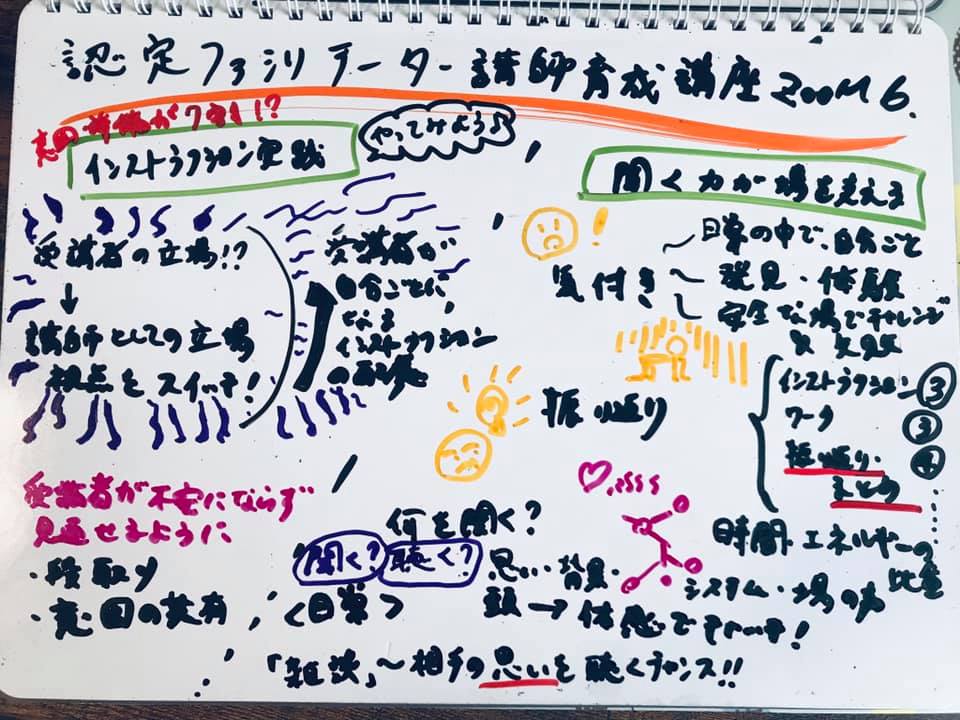 認定ファシリテーター講師育成講座 ZOOM 6.
意図 準備が7割!?
やってみよう♪
インストラクション実践
受講者の立場!?
↓
講師としての立場
視点をスイッチ!
受講者が
自分ごとに
なる
インストラクション
の
受講者が不安にならず
見通せるように
・段取り
・意図の共有
聞く力が場を支える
気付き
日常の中で、自分ごと
発見・体験
安全な場でチャレンジ
振り返り
インストラクション ③
ワーク ③
振り返り・ ④
まとめ
時間・エネルギーの
比重
何を聞く?
聞く? 聴く?
<日常>
思い・背景・
システム・場の声
頭→体感でキャッチ!
「雑談」〜相手の思いを聴くチャンス!!